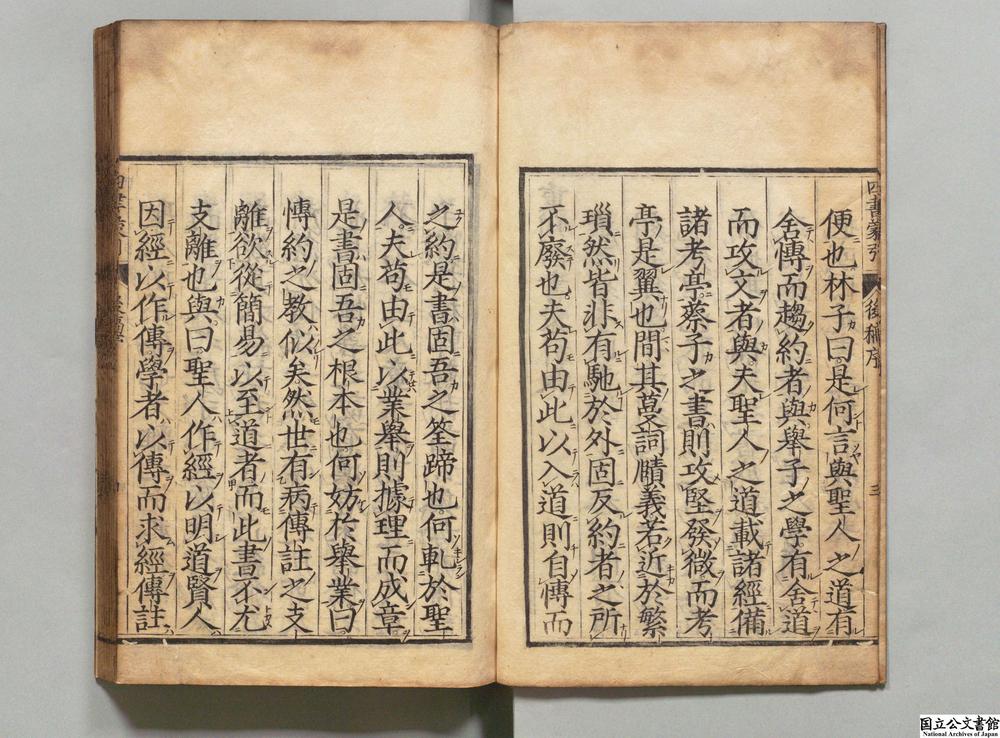 四書蒙引
後稿序
三
便也林子曰是何言與聖人之道有
舍愽而趨約者與舉子之學有舍道
而攻文者與夫聖人之道載諸經備
諸考亭蔡子之書則攻堅發微而考
亭是翼也間其蔓詞賾義若近於繁
瑣然皆非有馳於外固反約者之所
不廢也夫苟由此以入道則自愽而
之約是書固吾之筌蹄也何軋於聖
人夫苟由此以業舉則據理而成章
是書固吾之根本也何妨於舉業曰
愽約之教似矣然世有病傳註之支
離欲從簡易以至道者而此書不尤
支離也與曰聖人作經以明道賢人
因經以作傳學者以傳而求經傳註
国立公文書館
National Archives of Japan